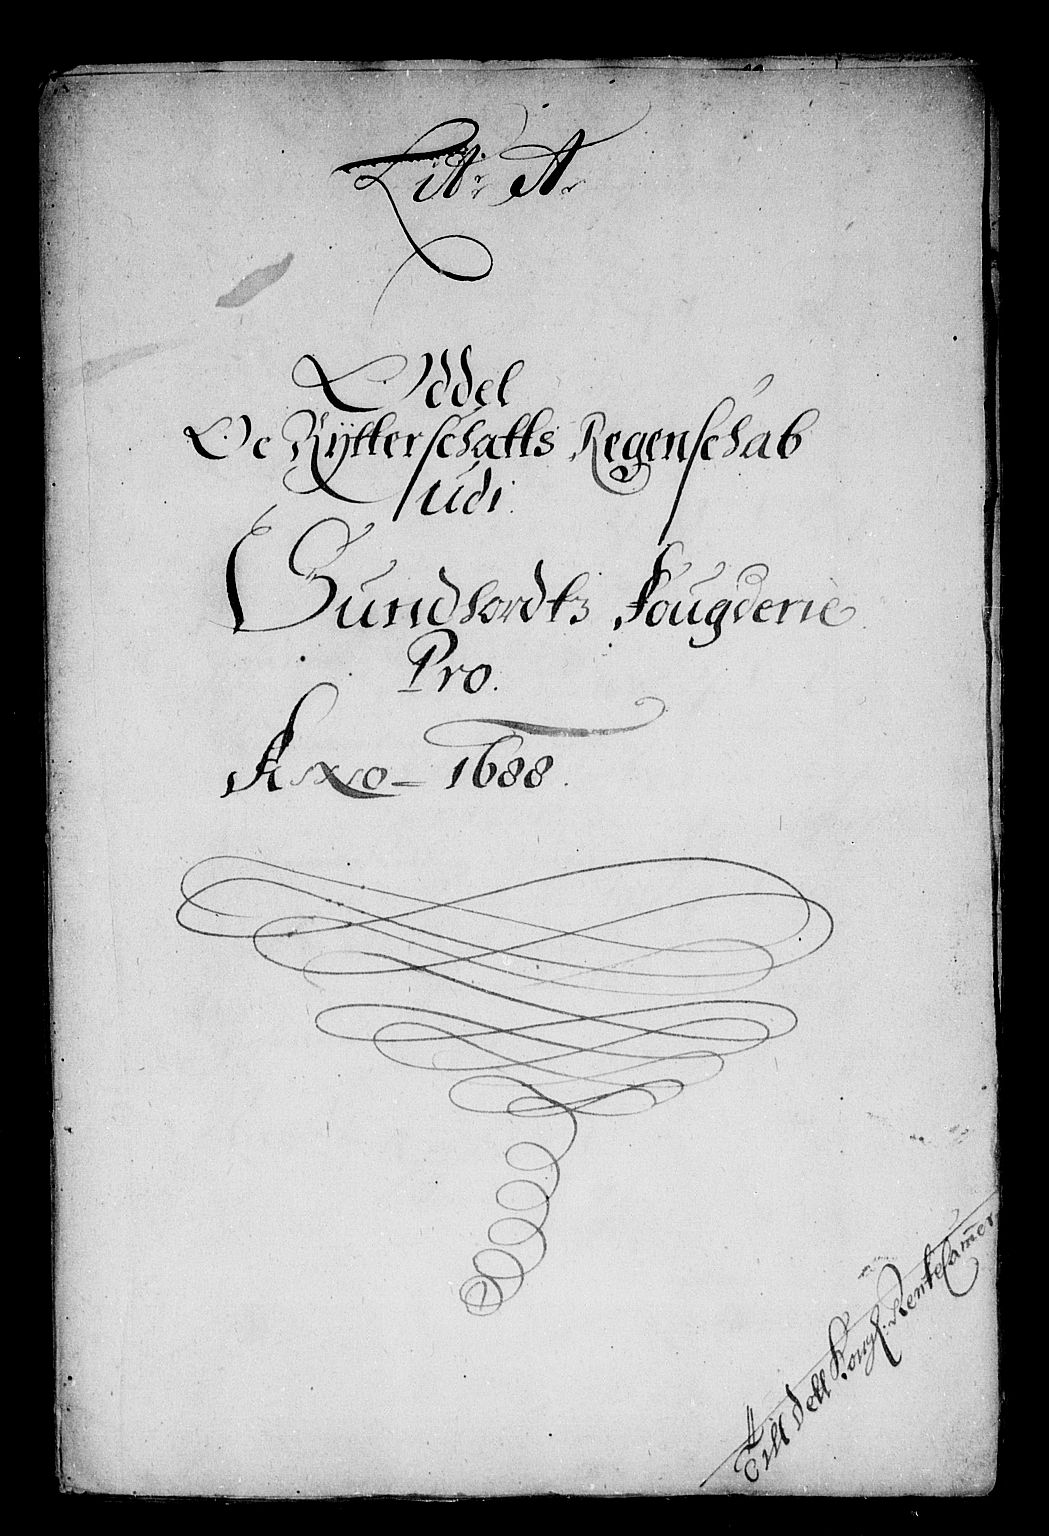 Lit: A.
Oddel
Oc Rytterschatts Regenschab
udi
Sundhordtz Fougderie
Pro.
Anno 1688.
Till dett Kongl: Rentecamer